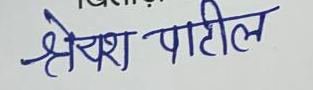 श्रेयश पाटील